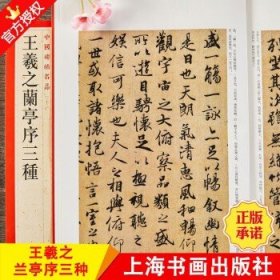 官方授权
中國碑帖名品
王羲之蘭亭序三種
盛一觴一詠亦足以暢叙幽情
是日也天朗氣清惠風和暢仰
觀宇宙之大俯察品類之盛
所以遊目騁懷足以極視聽之
娛信可樂也夫人之相與俯仰
一世或取諸懷抱悟言一室之內
正版
承诺
王羲之
兰亭序三种
上海书画出版社